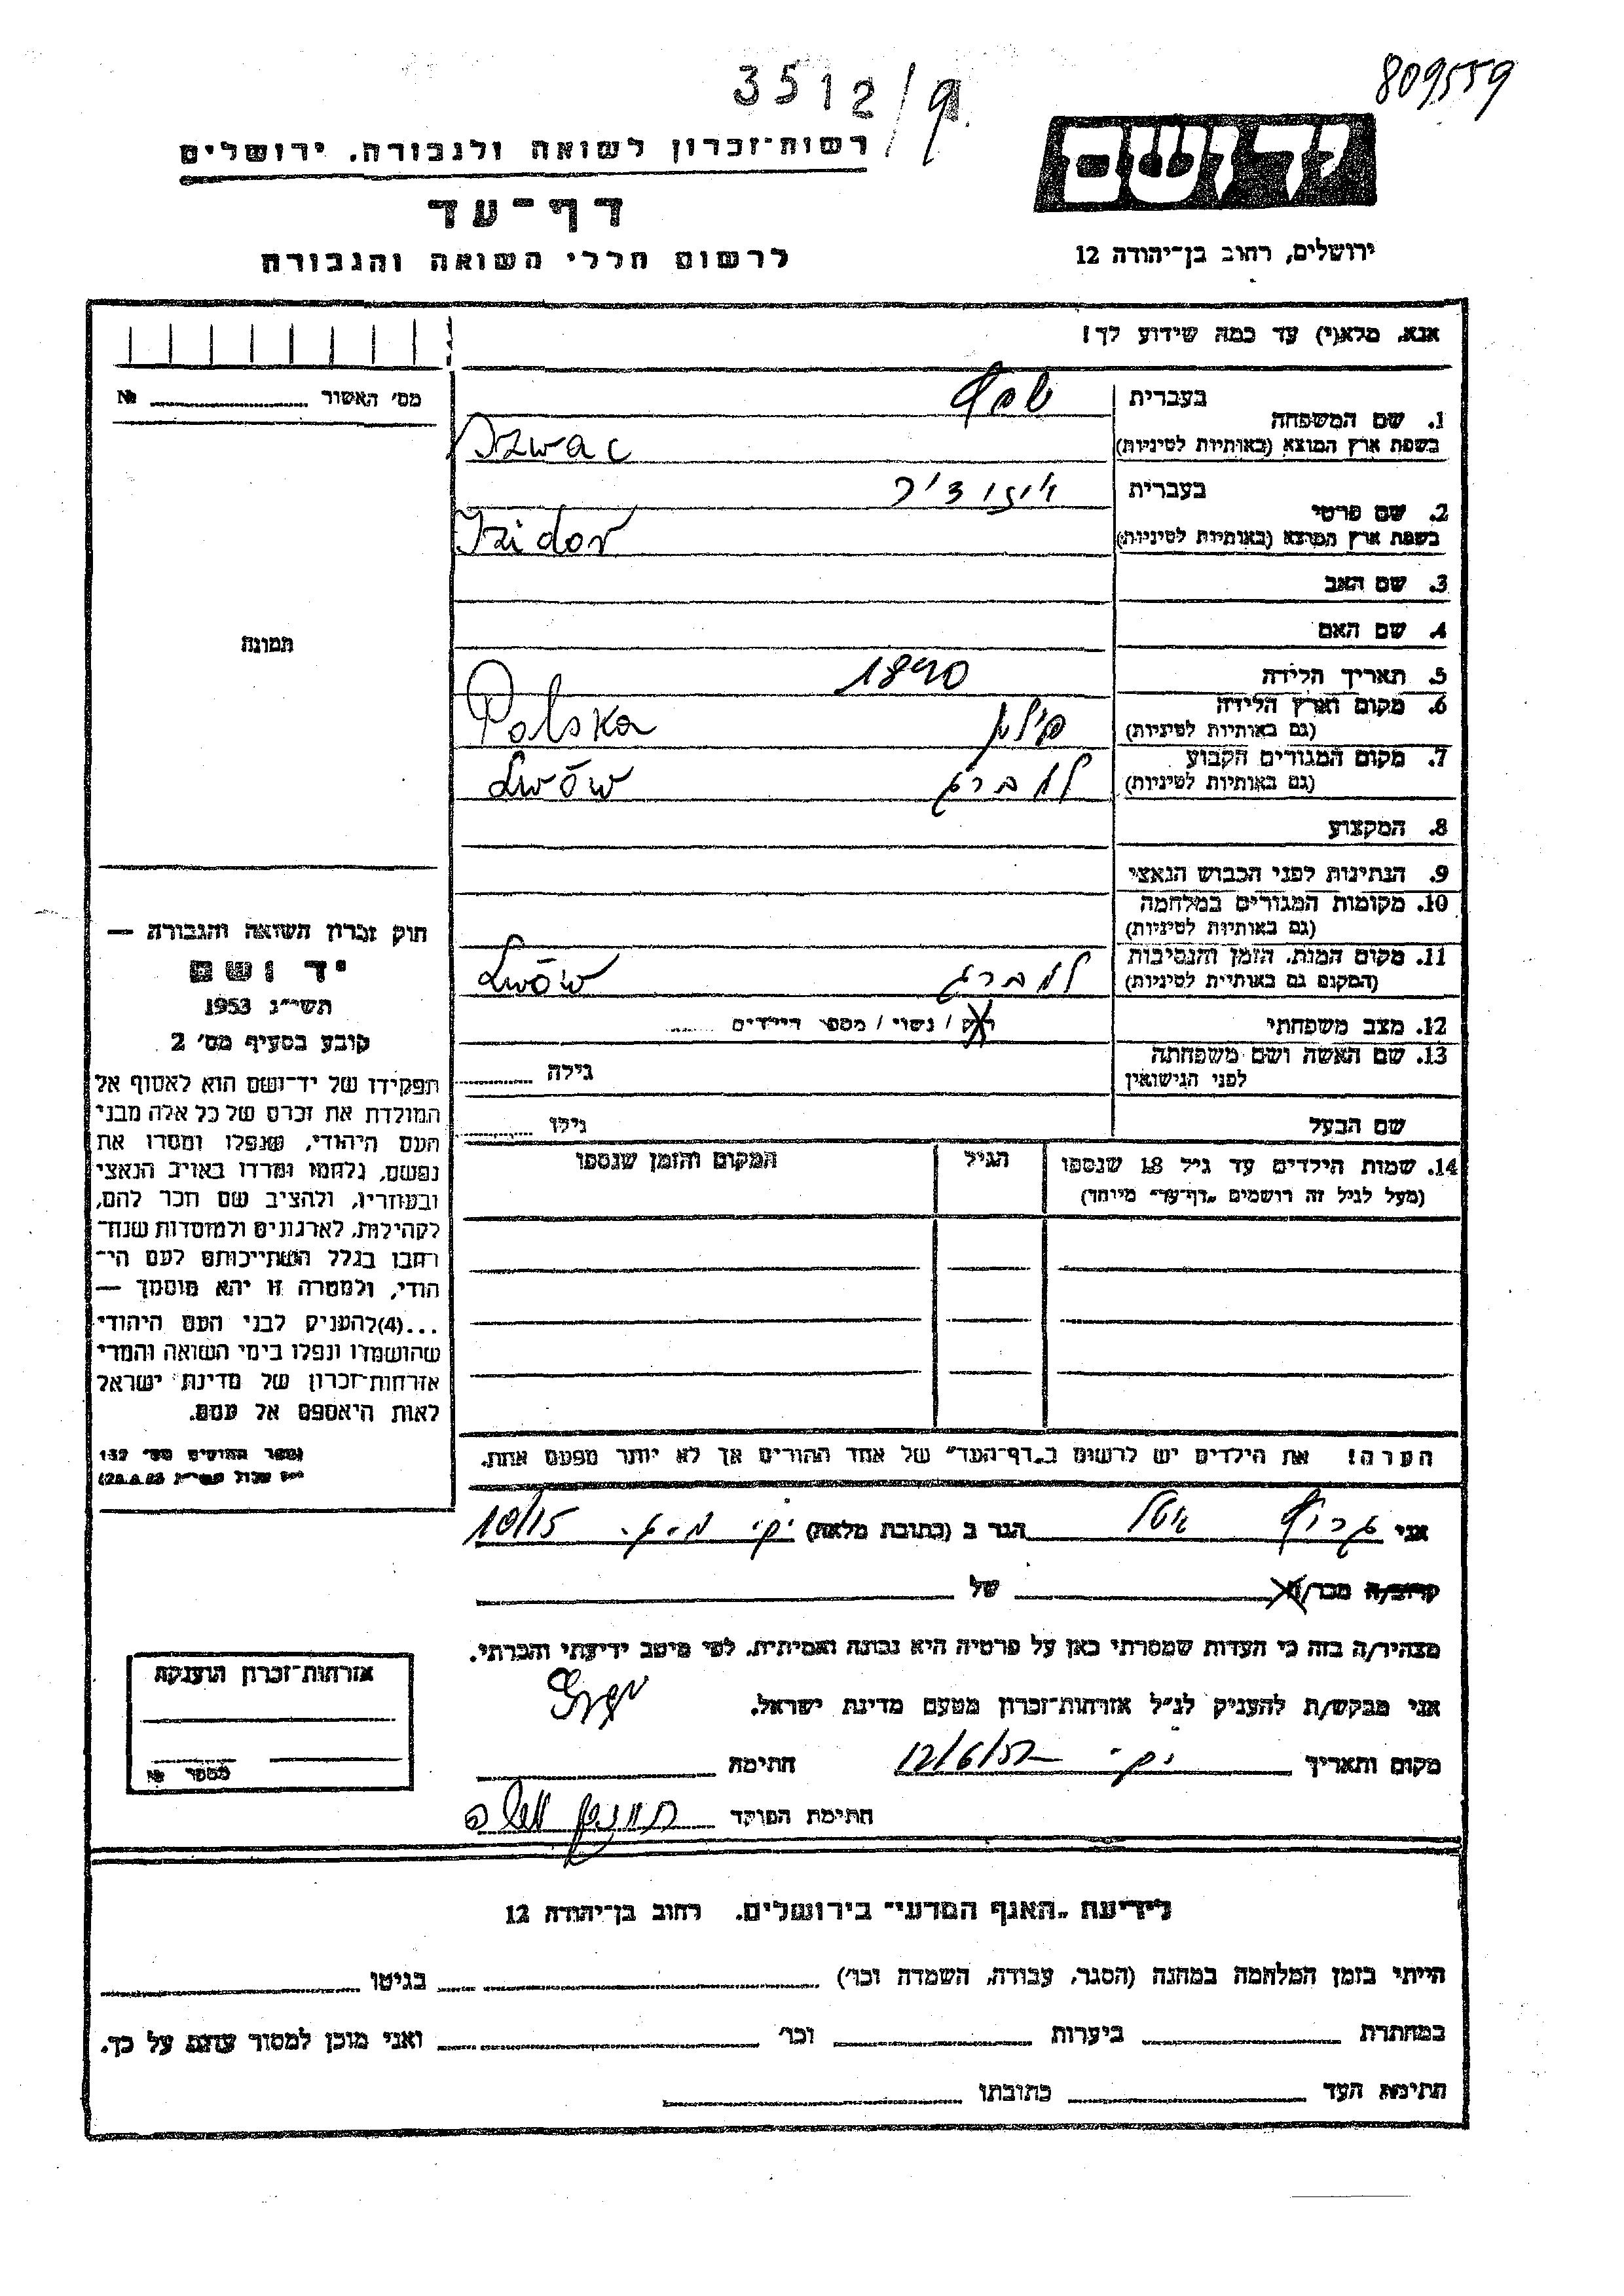 809559
3512/9
יד ושם
רשות־זכרון לשואה ולגבורה, ירושלים
דף־עד
לרשום חללי השואה והגבורה
ירושלים, רחוב בן־יהודה 12
אנא, מלא(י) עד כמה שידוע לך!
מס' האשור № 
1. שם המשפחה
בעברית
בשפת ארץ המוצא (באותיות לטיניות)
Szwac
2. שם פרטי
בעברית
בשפת ארץ המוצא (באותיות לטיניות) Izidor
3. שם האב
4. שם האם
תמונה
5. תאריך הלידה 1890
6. מקום וארץ הלידה
(גם באותיות לטיניות) פולין Polska
7. מקום המגורים הקבוע
(גם באותיות לטיניות) למברג Lwów
8. המקצוע
9. הנתינות לפני הכבוש הנאצי
10. מקומות המגורים במלחמה
(גם באותיות לטיניות)
11. מקום המות, הזמן והנסיבות
(המקום גם באותיות לטיניות) למברג Lwów
12. מצב משפחתי רוק / נשוי / מספר הילדים
13. שם האשה ושם משפחתה
לפני הנישואין גילה
שם הבעל גילו
14. שמות הילדים עד גיל 18 שנספו
(מעל לגיל זה רושמים „דף־עד" מיוחד)
הגיל
המקום והזמן שנספו
חוק זכרון השואה והגבורה —
יד ושם
תשי"ג 1953
קובע בסעיף מס' 2
תפקידו של יד־ושם הוא לאסוף אל
המולדת את זכרם של כל אלה מבני
העם היהודי, שנפלו ומסרו את
נפשם, נלחמו ומרדו באויב הנאצי
ובעוזריו, ולהציב שם וזכר להם,
לקהילות, לארגונים ולמוסדות שנח־
רבו בגלל השתייכותם לעם הי־
הודי, ולמטרה זו יהא מוסמך —
...(4)להעניק לבני העם היהודי
שהושמדו ונפלו בימי השואה והמרי
אזרחות־זכרון של מדינת ישראל
לאות היאספם אל עמם.
ספר החוקים מס' 132
הערה! את הילדים יש לרשום ב„דף־העד" של אחד ההורים אך לא יותר מפעם אחת.
אני הגר ב (כתובת מלאה) 10/15
קרוב/ה מכר/ה של
מצהיר/ה בזה כי העדות שמסרתי כאן על פרטיה היא נכונה ואמיתית, לפי מיטב ידיעתי והכרתי.
אני מבקש/ת להעניק לנ"ל אזרחות־זכרון מטעם מדינת ישראל.
מקום ותאריך 12/6/57 חתימה
חתימת הפוקד
אזרחות־זכרון הוענקה
מספר №
לידיעת „האגף המדעי" בירושלים, רחוב בן־יהודה 12
הייתי בזמן המלחמה במחנה (הסגר, עבודה, השמדה וכו') בגיטו
במחתרת ביערות וכו' ואני מוכן למסור עדותי על כך.
חתימת העד כתובתו